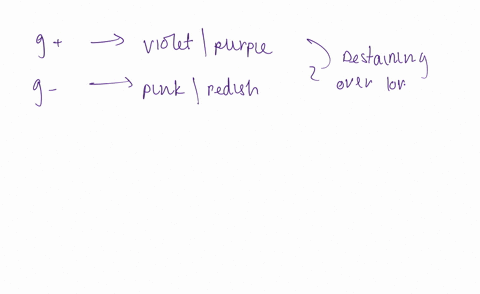 g+ → violet | purple
g- → pink | redish
Destaining
over lor